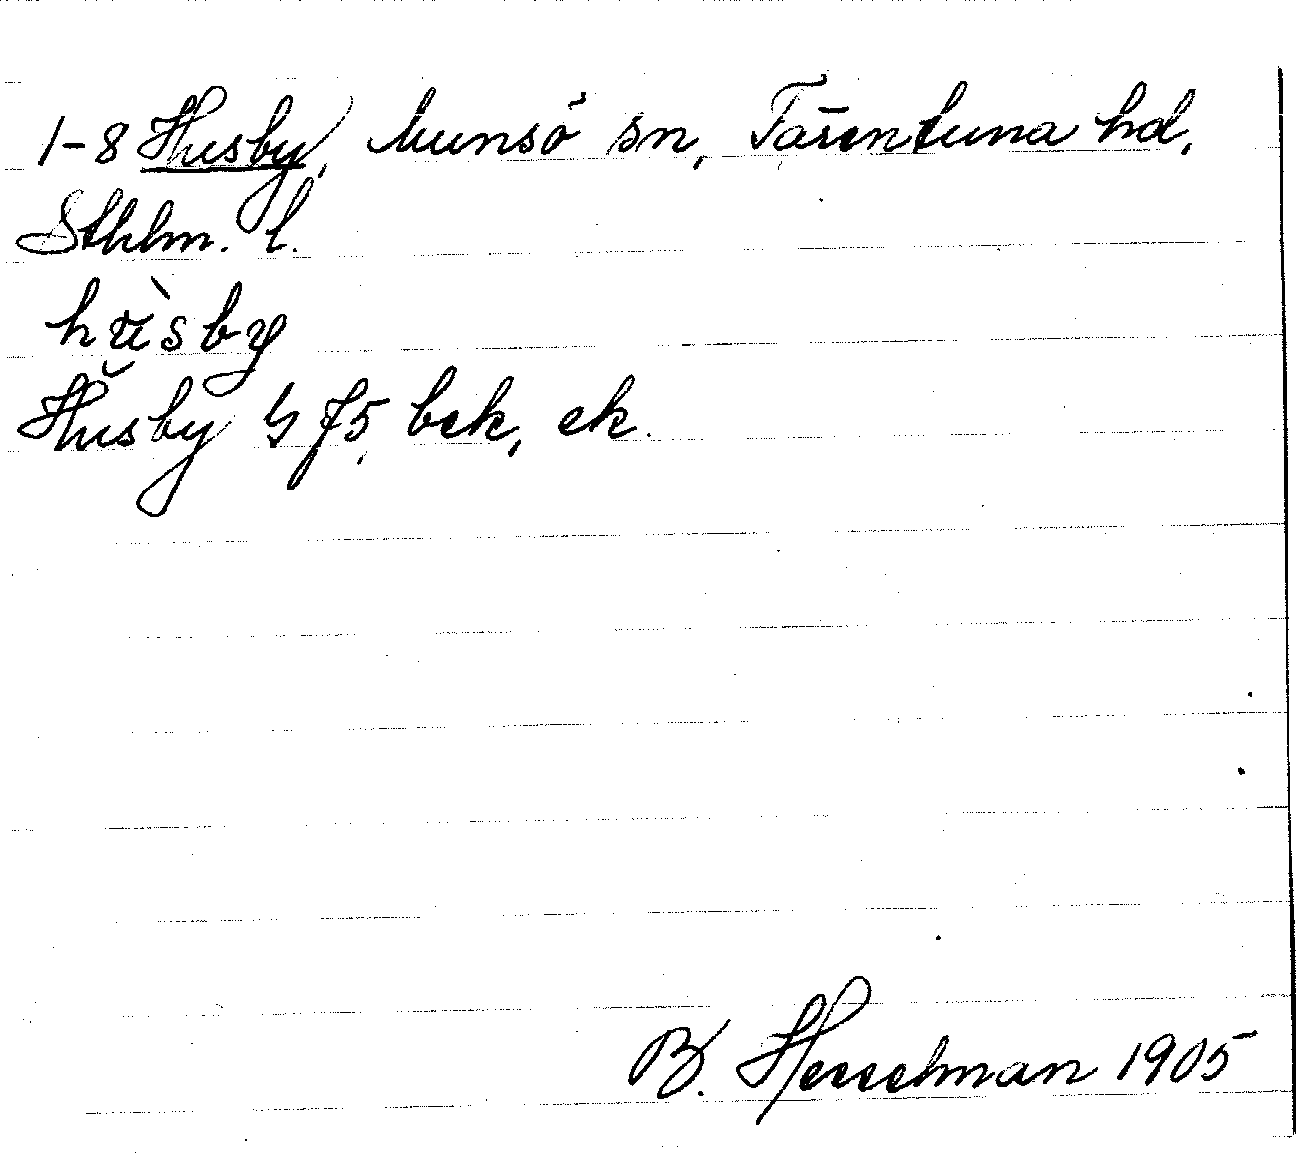 1-8 Husby, Munsö sn, Färentuna hd,
Sthlm. l.
hùsby
Husby G 75, bek, ek.
B. Hesselman 1905